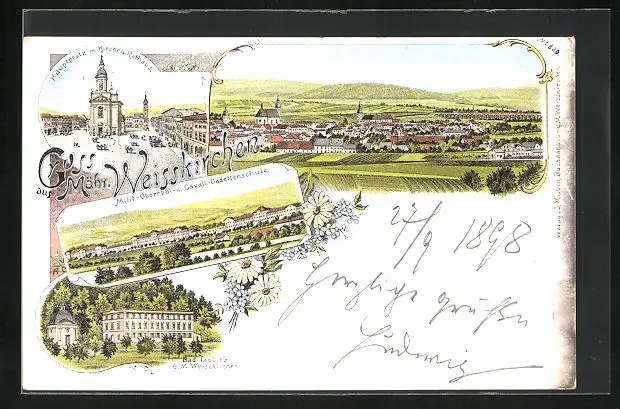 Hauptplatz m. Kirche u. Rathaus.
Gruss
aus Mähr. Weisskirchen.
Milit.-Oberreal- u. Cavall.-Cadettenschule.
Bad Teplitz
b. M. Weisskirchen.
27/9 1898
Herzlige Grüße
Ludwig